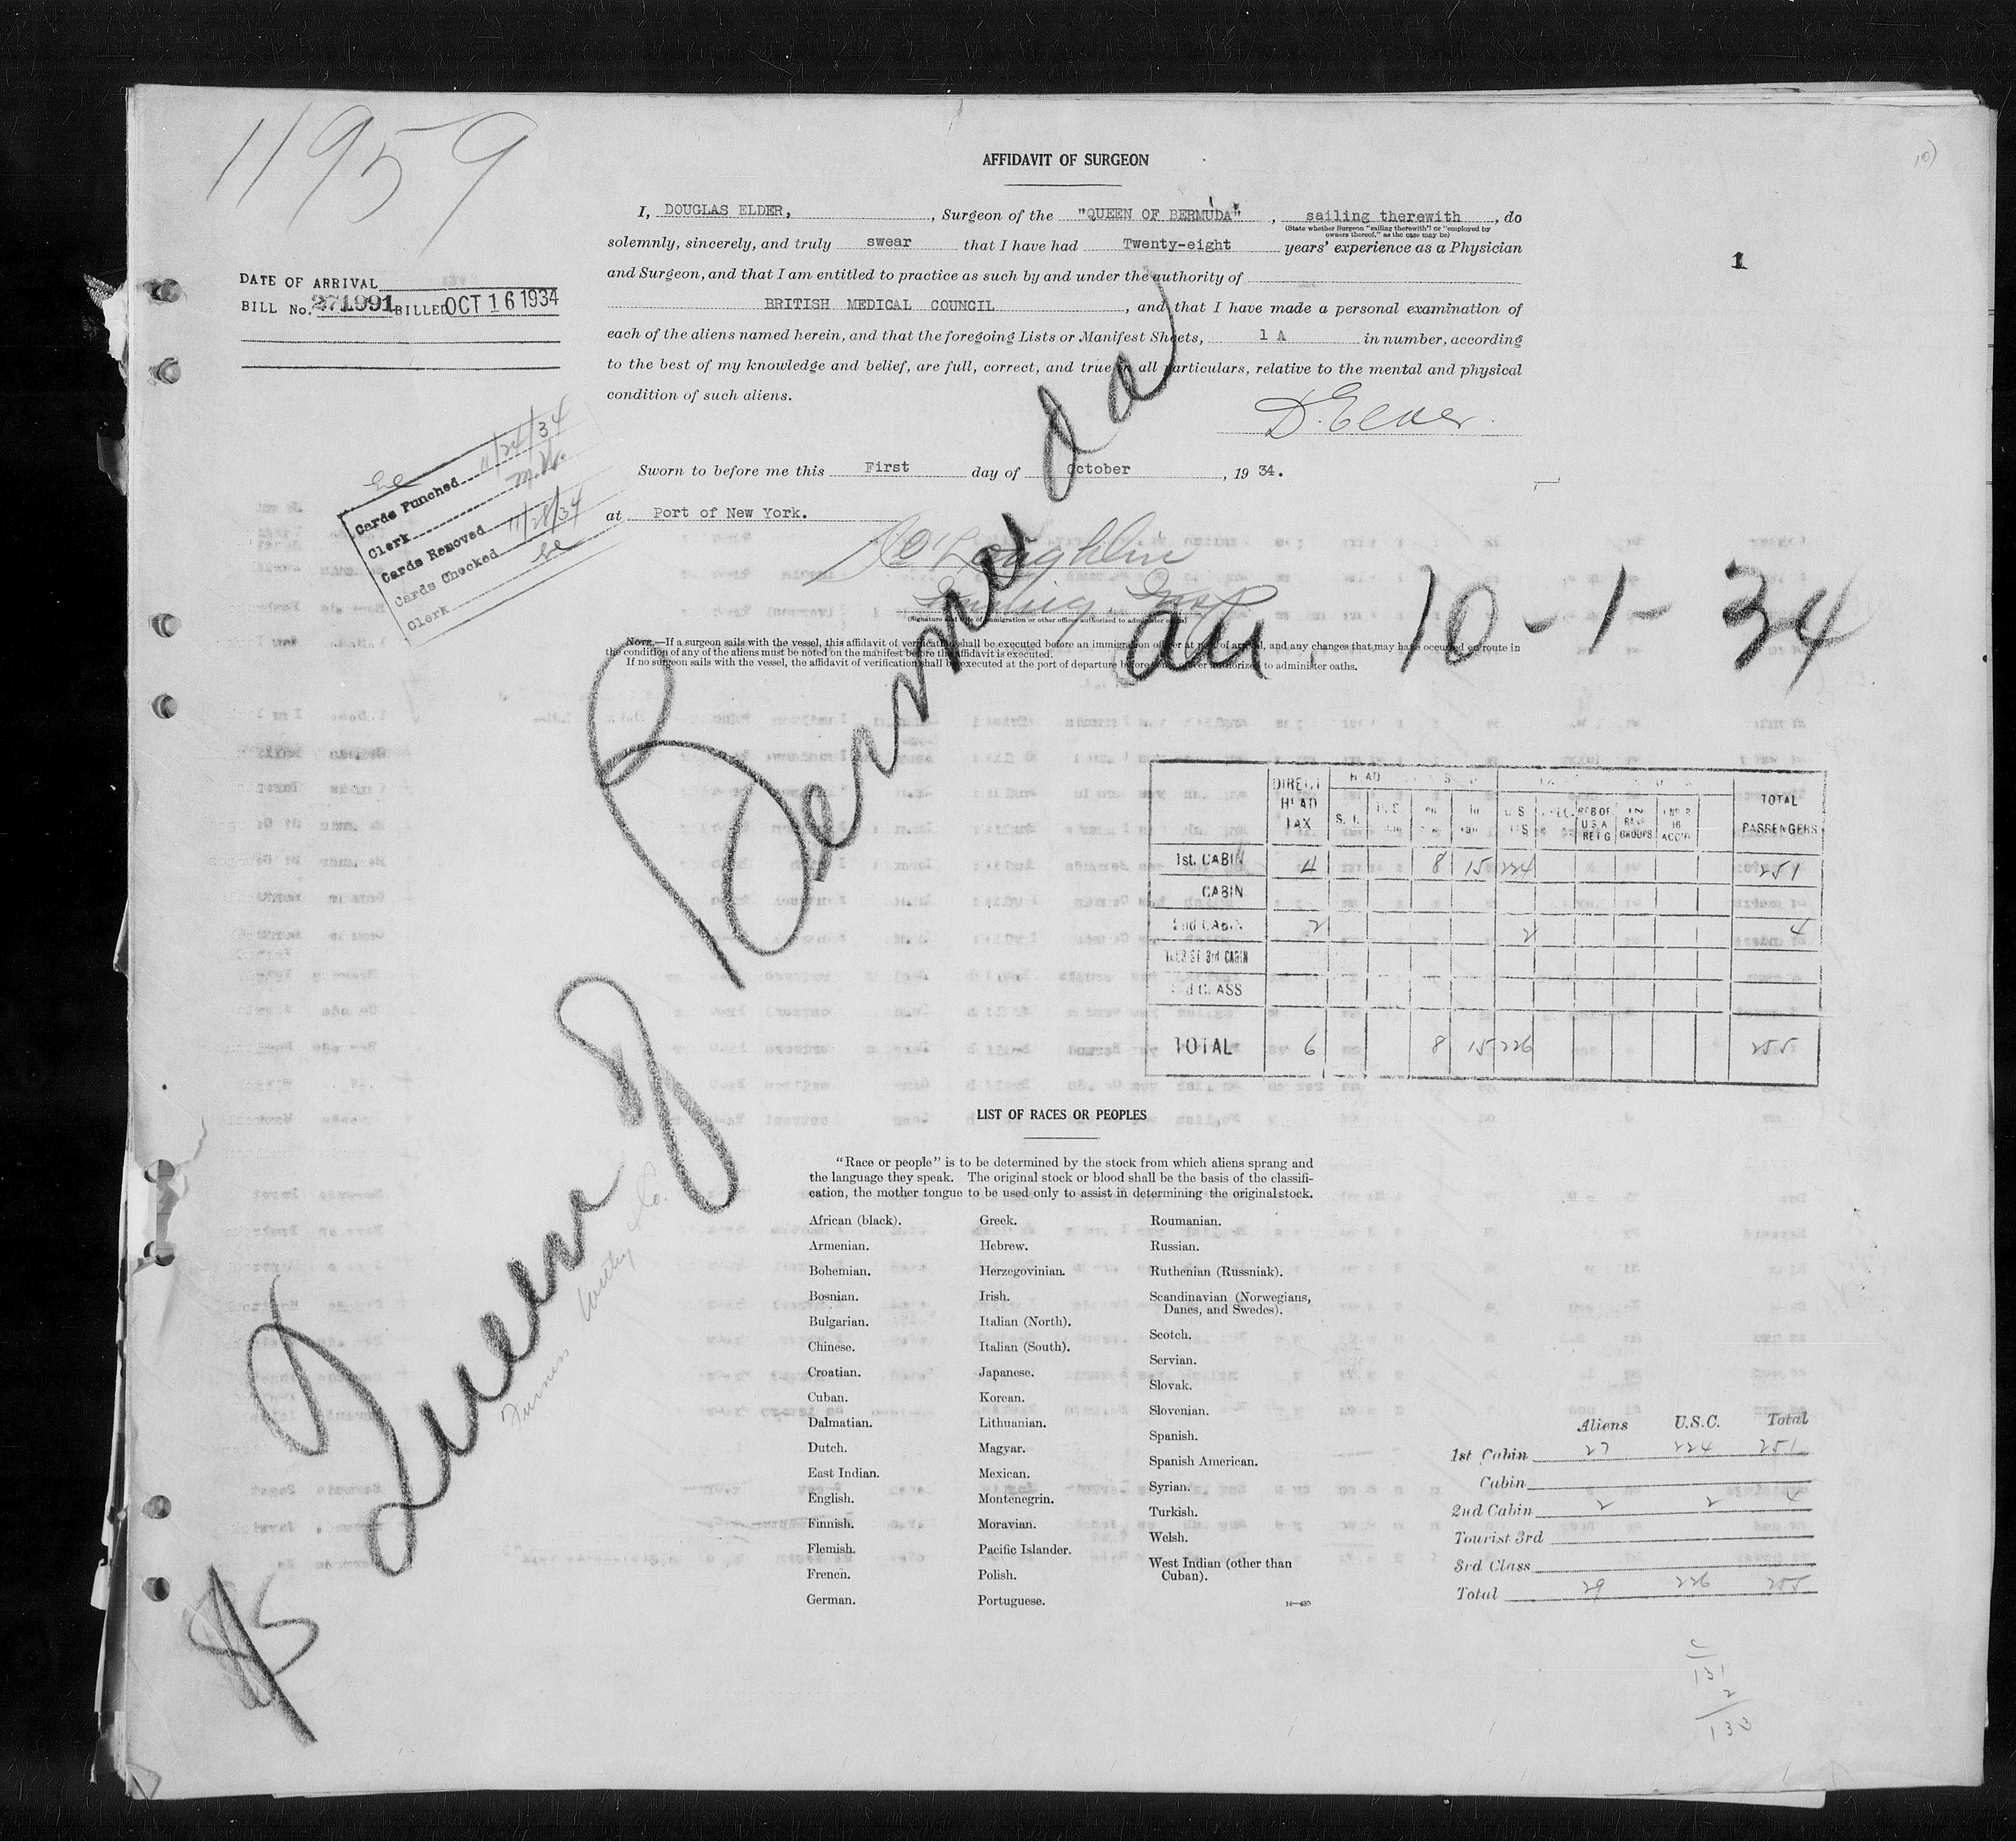 11959
AFFIDAVIT OF SURGEON
I, DOUGLAS ELDER, , Surgeon of the "QUEEN OF BERMUDA" , sailing therewith , do
(State whether Surgeon "sailing therewith" or "employed by
owners thereof," as the case may be)
solemnly, sincerely, and truly swear that I have had Twenty-eight years' experience as a Physician
and Surgeon, and that I am entitled to practice as such by and under the authority of
BRITISH MEDICAL COUNCIL , and that I have made a personal examination of
each of the aliens named herein, and that the foregoing Lists or Manifest Sheets, 1 A in number, according
to the best of my knowledge and belief, are full, correct, and true in all particulars, relative to the mental and physical
condition of such aliens.
D. Elder.
1
DATE OF ARRIVAL
BILL No. 271991 BILLED OCT 16 1934
Cards Punched 11/24/34
Clerk M.W.
Cards Removed
Cards Checked 11/28/34
Clerk
Sworn to before me this First day of October , 19 34.
at Port of New York.
O'Loughlin
Immig. Insp
(Signature and title of immigration or other officer authorized to administer oaths)
NOTE.—If a surgeon sails with the vessel, this affidavit of verification shall be executed before an immigration officer at port of arrival, and any changes that may have occurred en route in
the condition of any of the aliens must be noted on the manifest before the affidavit is executed.
If no surgeon sails with the vessel, the affidavit of verification shall be executed at the port of departure before an officer authorized to administer oaths.
10-1-34
Queen of Bermuda
Furness Withy Co.
DIRECT HEAD TAX
HEAD
TOTAL PASSENGERS
1st. CABIN 4 8 15 224 251
CABIN
2nd CABIN 2 2 4
TOURIST 3rd CABIN
3rd CLASS
TOTAL 6 8 15 226 255
LIST OF RACES OR PEOPLES
"Race or people" is to be determined by the stock from which aliens sprang and
the language they speak. The original stock or blood shall be the basis of the classifi-
cation, the mother tongue to be used only to assist in determining the original stock.
African (black).
Armenian.
Bohemian.
Bosnian.
Bulgarian.
Chinese.
Croatian.
Cuban.
Dalmatian.
Dutch.
East Indian.
English.
Finnish.
Flemish.
French.
German.
Greek.
Hebrew.
Herzegovinian.
Irish.
Italian (North).
Italian (South).
Japanese.
Korean.
Lithuanian.
Magyar.
Mexican.
Montenegrin.
Moravian.
Pacific Islander.
Polish.
Portuguese.
Roumanian.
Russian.
Ruthenian (Russniak).
Scandinavian (Norwegians,
Danes, and Swedes).
Scotch.
Servian.
Slovak.
Slovenian.
Spanish.
Spanish American.
Syrian.
Turkish.
Welsh.
West Indian (other than
Cuban).
Aliens U.S.C. Total
1st Cabin 27 224 251
Cabin
2nd Cabin 2 2 4
Tourist 3rd
3rd Class
Total 29 226 255
131
2
133